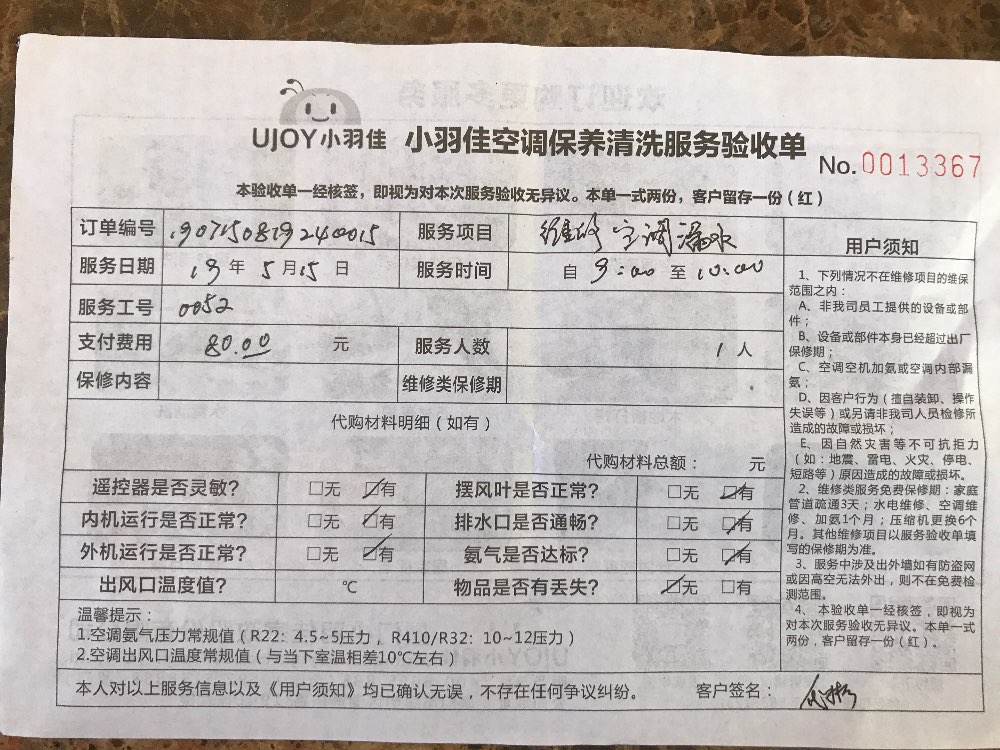 UJOY小羽佳 小羽佳空调保养清洗服务验收单
No.0013367
本验收单一经核签，即视为对本次服务验收无异议。本单一式两份，客户留存一份（红）
订单编号 1907150819240015 服务项目 维修空调漏水
服务日期 19年5月15日 服务时间 自9:00至10:00
服务工号 0052
支付费用 80.00 元 服务人数 1人
保修内容 维修类保修期
代购材料明细（如有）
代购材料总额： 元
遥控器是否灵敏? □无 ☑有 摆风叶是否正常? □无 ☑有
内机运行是否正常? □无 ☑有 排水口是否通畅? □无 ☑有
外机运行是否正常? □无 ☑有 氨气是否达标? □无 ☑有
出风口温度值? ℃ 物品是否有丢失? ☑无 □有
温馨提示：
1.空调氨气压力常规值（R22：4.5~5压力，R410/R32：10~12压力）
2.空调出风口温度常规值（与当下室温相差10℃左右）
本人对以上服务信息以及《用户须知》均已确认无误，不存在任何争议纠纷。 客户签名：
用户须知
1、下列情况不在维修项目的维保
范围之内：
A、非我司员工提供的设备或部
件；
B、设备或部件本身已经超过出厂
保修期；
C、空调空机加氨或空调内部漏
氨；
D、因客户行为（擅自装卸、操作
失误等）或另请非我司人员检修所
造成的故障或损坏；
E、因自然灾害等不可抗拒力
（如：地震、雷电、火灾、停电、
短路等）原因造成的故障或损坏。
2、维修类服务免费保修期：家庭
管道疏通3天；水电维修、空调维
修、加氨1个月；压缩机更换6个
月。其他维修项目以服务验收单填
写的保修期为准。
3、服务中涉及出外墙如有防盗网
或因高空无法外出，则不在免费检
测范围。
4、本验收单一经核签，即视为
对本次服务验收无异议。本单一式
两份，客户留存一份（红）。